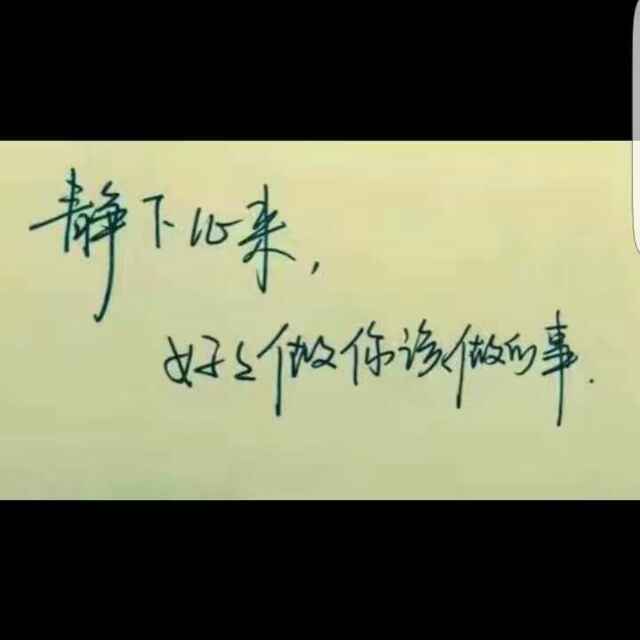 静下心来，
好々做你该做的事.